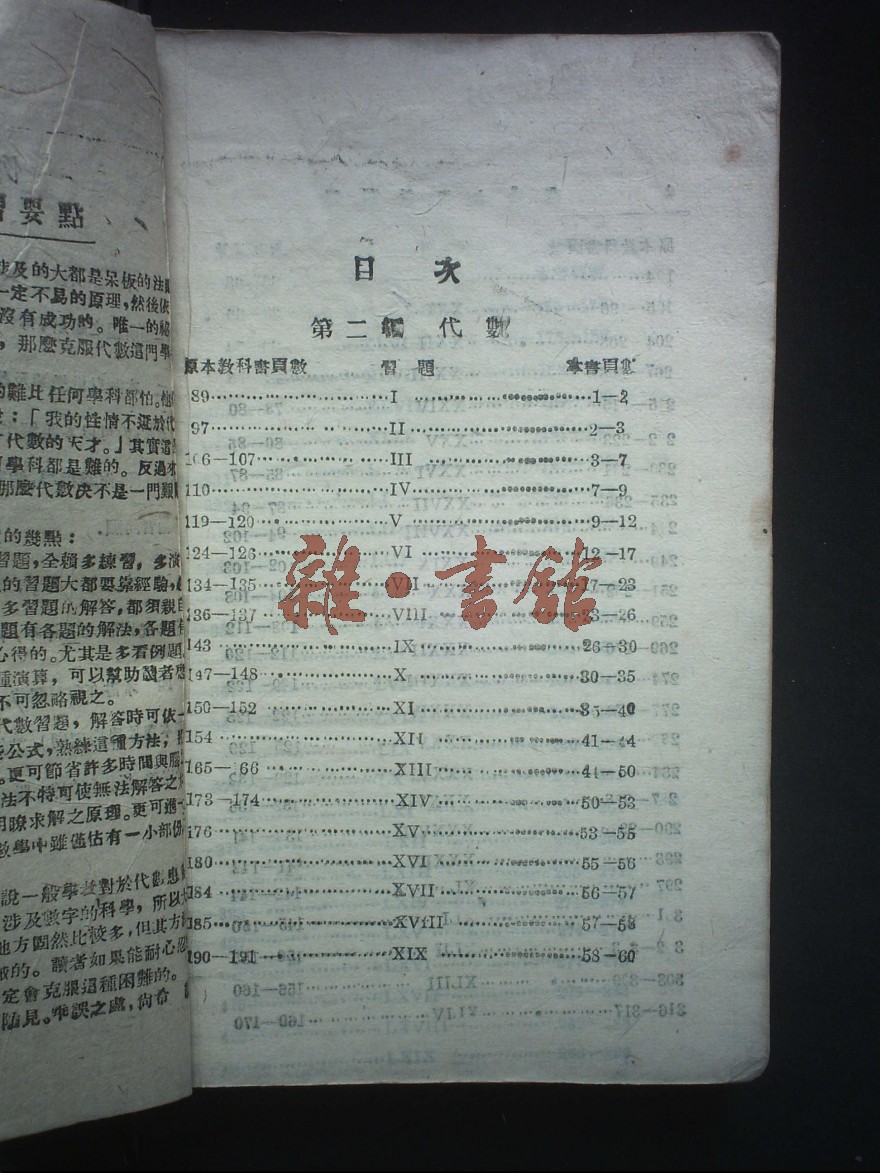 習要點
涉及的大都是呆板的法則
一定不易的原理,然後依
沒有成功的。唯一的秘
,那麼克服代數這門學
的難比任何學科都怕。他
:「我的性情不近於代
代數的天才。」其實這
學科都是難的。反過來
那麼代數决不是一門艱
的幾點:
習題,全賴多練習,多演
的習題大都要靠經驗,
多習題的解答,都須親自
題有各題的解法,各題有
心得的。尤其是多看例題
種演算,可以幫助讀者應
不可忽略視之。
代數習題,解答時可依一
些公式,熟練這種方法,
。更可節省許多時間與腦
法不特可使無法解答之
明瞭求解之原理。更可進一
數學中雖僅估有一小部份
說一般學者對於代數患
涉及數字的科學,所以
地方固然比較多,但其方
做的。讀者如果能耐心忍
定會克服這種困難的。
陋見。乖誤之處,尙希
目 次
第二編 代 數
原本教科書頁數 習 題 本書頁數
89 I 1—2
97 II 2—3
106—107 III 3—7
110 IV 7—9
119—120 V 9—12
124—126 VI 12—17
134—135 VII 17—23
136—137 VIII 23—26
143 IX 26—30
147—148 X 30—35
150—152 XI 35—40
154 XII 41—44
165—66 XIII 44—50
173—174 XIV 50—53
176 XV 53—55
180 XVI 55—56
184 XVII 56—57
185 XVIII 57—58
190—191 XIX 58—60
雜·書館